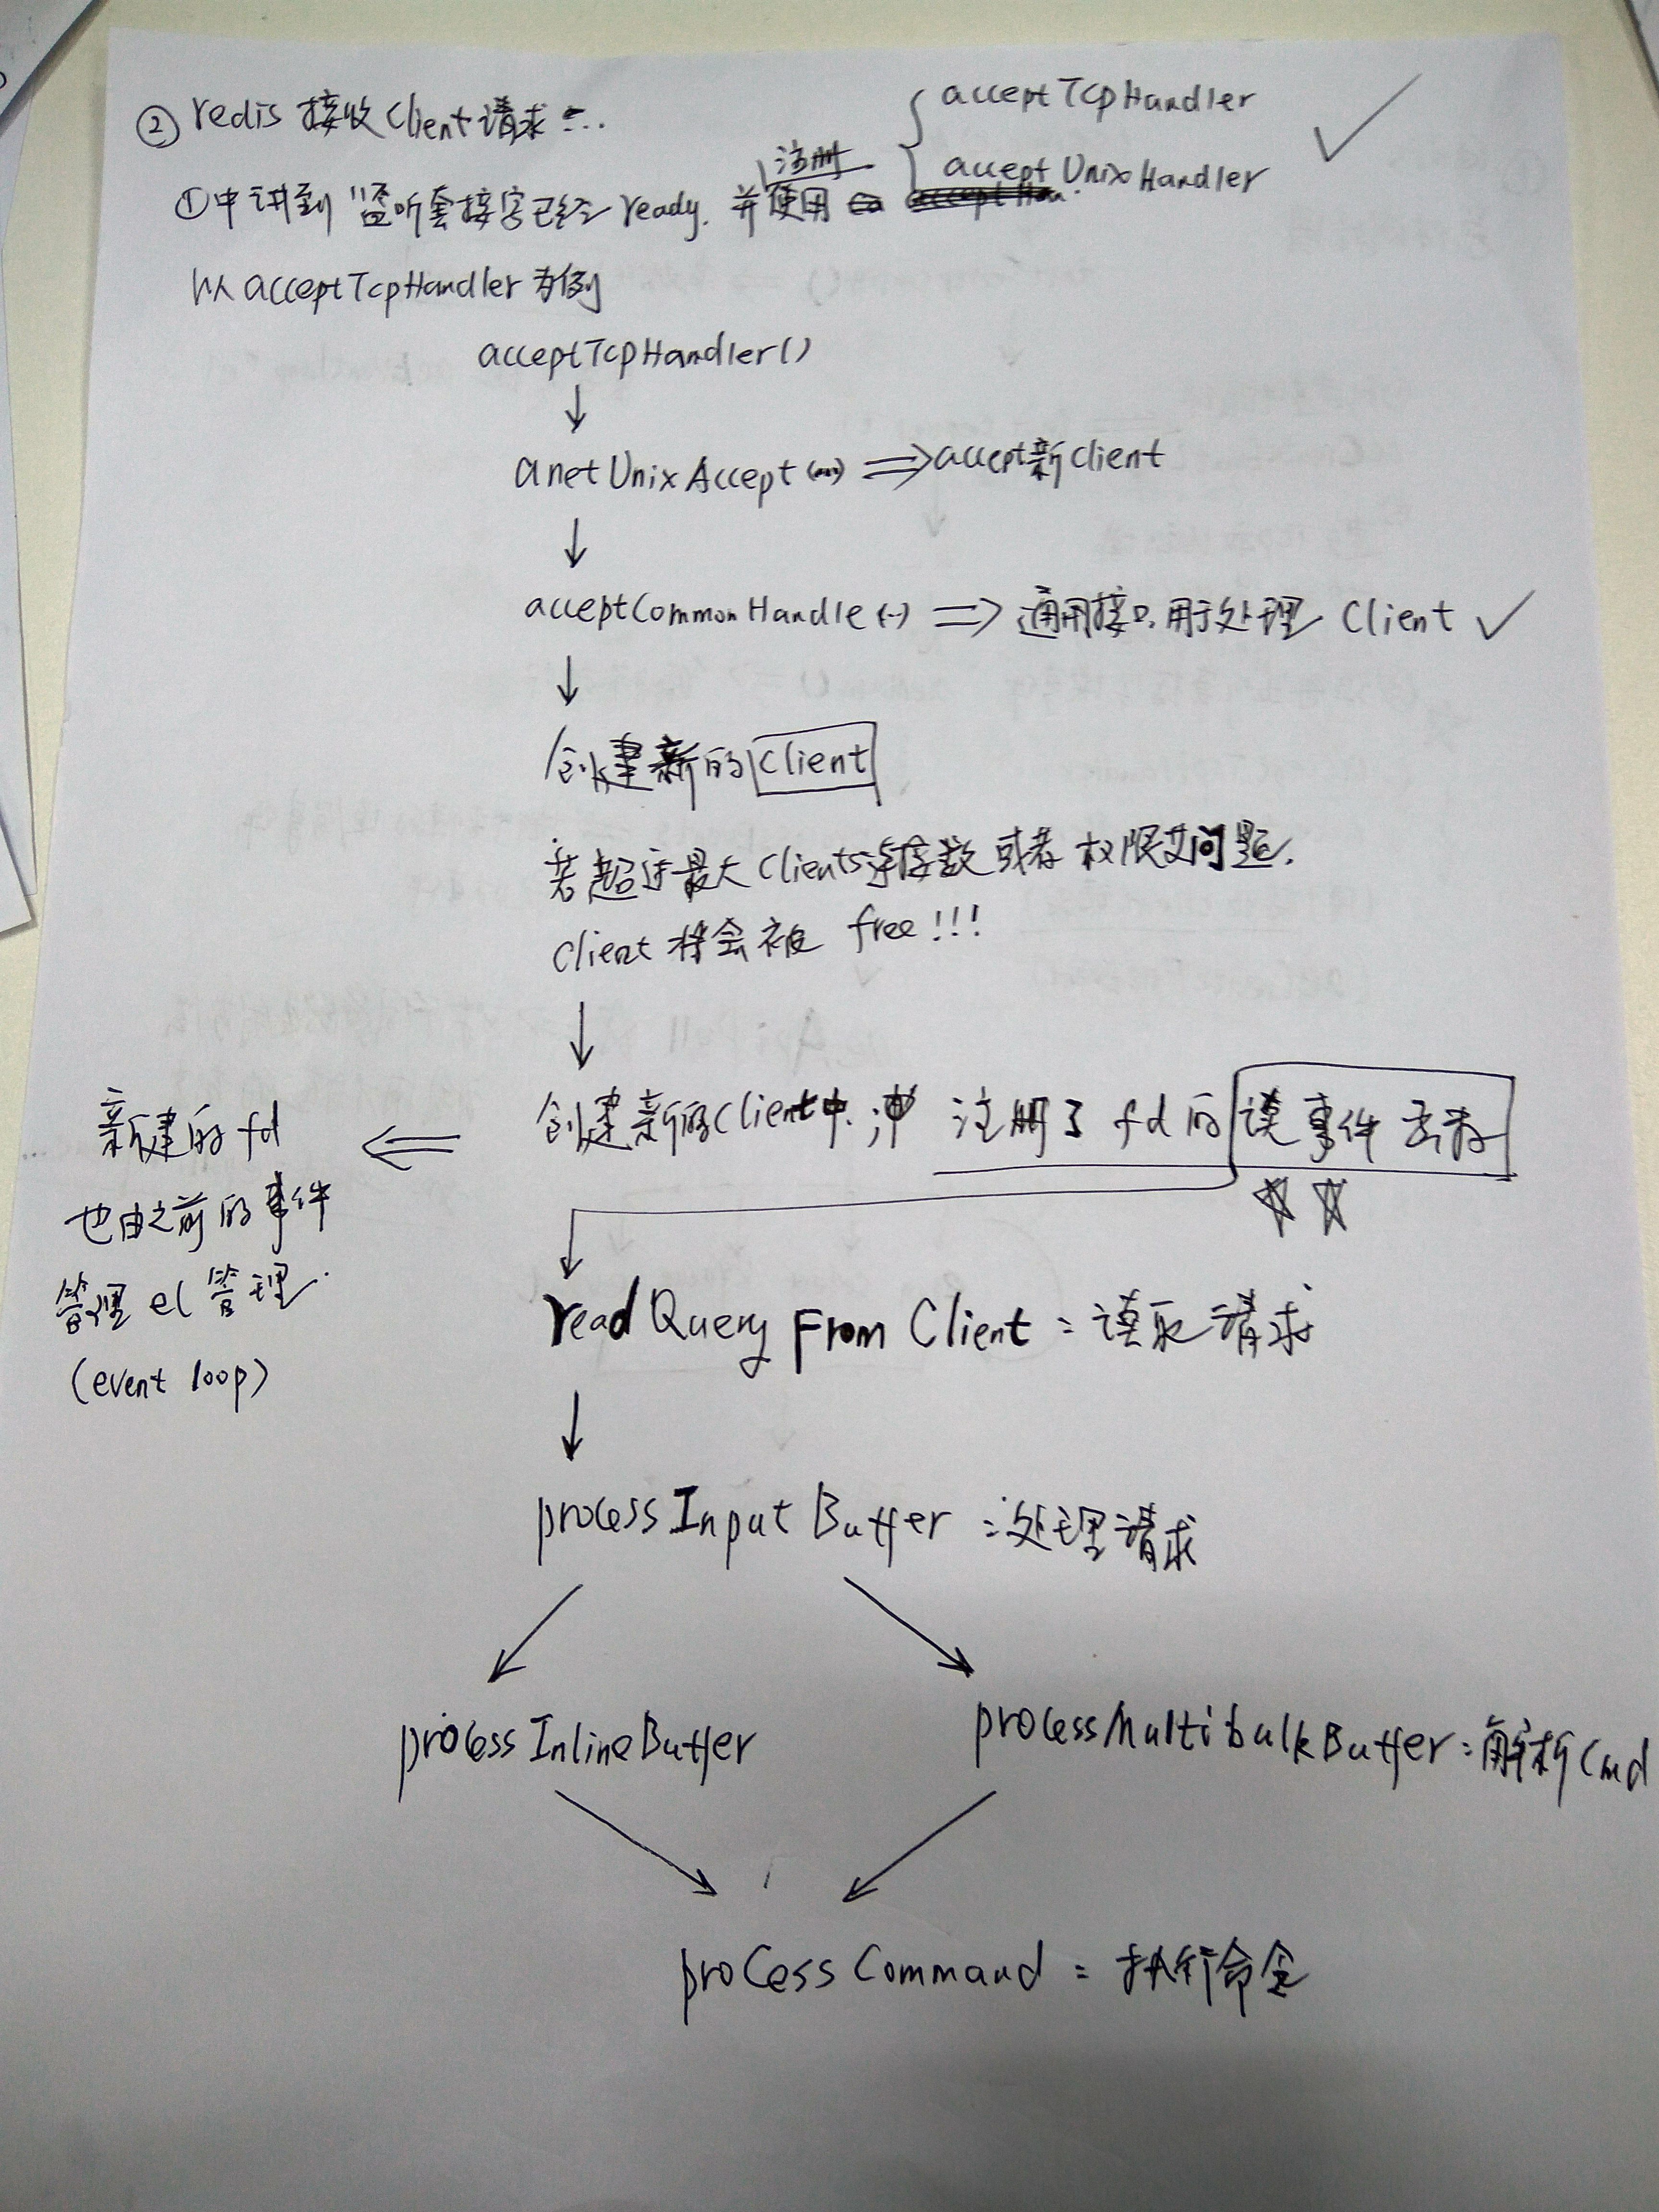 ② redis 接收 Client 请求 :...
acceptTcpHandler
acceptUnixHandler
注册
①中讲到 监听套接字已经 ready. 并使用
以 acceptTcpHandler 为例
acceptTcpHandler()
↓
anetUnixAccept(...) ⇒ accept新client
↓
acceptCommonHandle(..) ⇒ 通用接口,用于处理 Client ✓
↓
创建新的 Client
若超过最大Clients连接数 或者 权限问题.
Client 将会被 free!!!
↓
创建新的Client中, 注册了 fd 的 读事件
新建的 fd
也由之前的事件
管理 el 管理.
(event loop)
readQueryFromClient : 读取请求
↓
processInputBuffer : 处理请求
processInlineBuffer
processMultibulkBuffer : 解析Cmd
processCommand : 执行命令